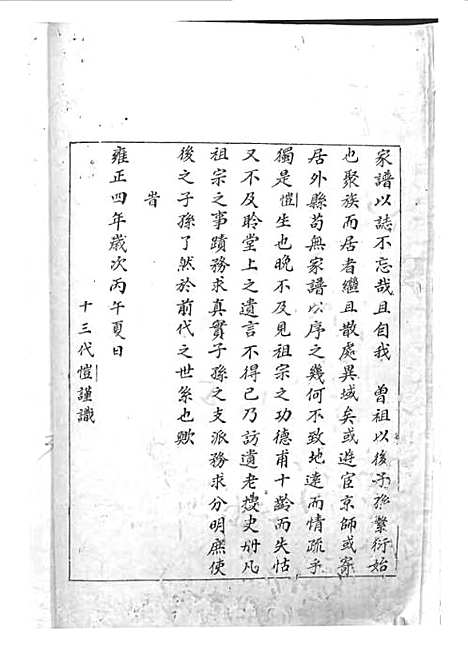 家譜以誌不忘哉且自我 曾祖以後子孫繁衍始
也聚族而居者繼且散處異域矣或遊宦京師或寄
居外縣苟無家譜以序之幾何不致地遠而情疏乎
獨是愷生也晚不及見祖宗之功德甫十齡而失怙
又不及聆堂上之遺言不得已乃訪遺老搜史册凡
祖宗之事蹟務求真實子孫之支派務求分明庶使
後之子孫了然於前代之世系也歟
旹
雍正四年歲次丙午夏日
十三代愷謹識